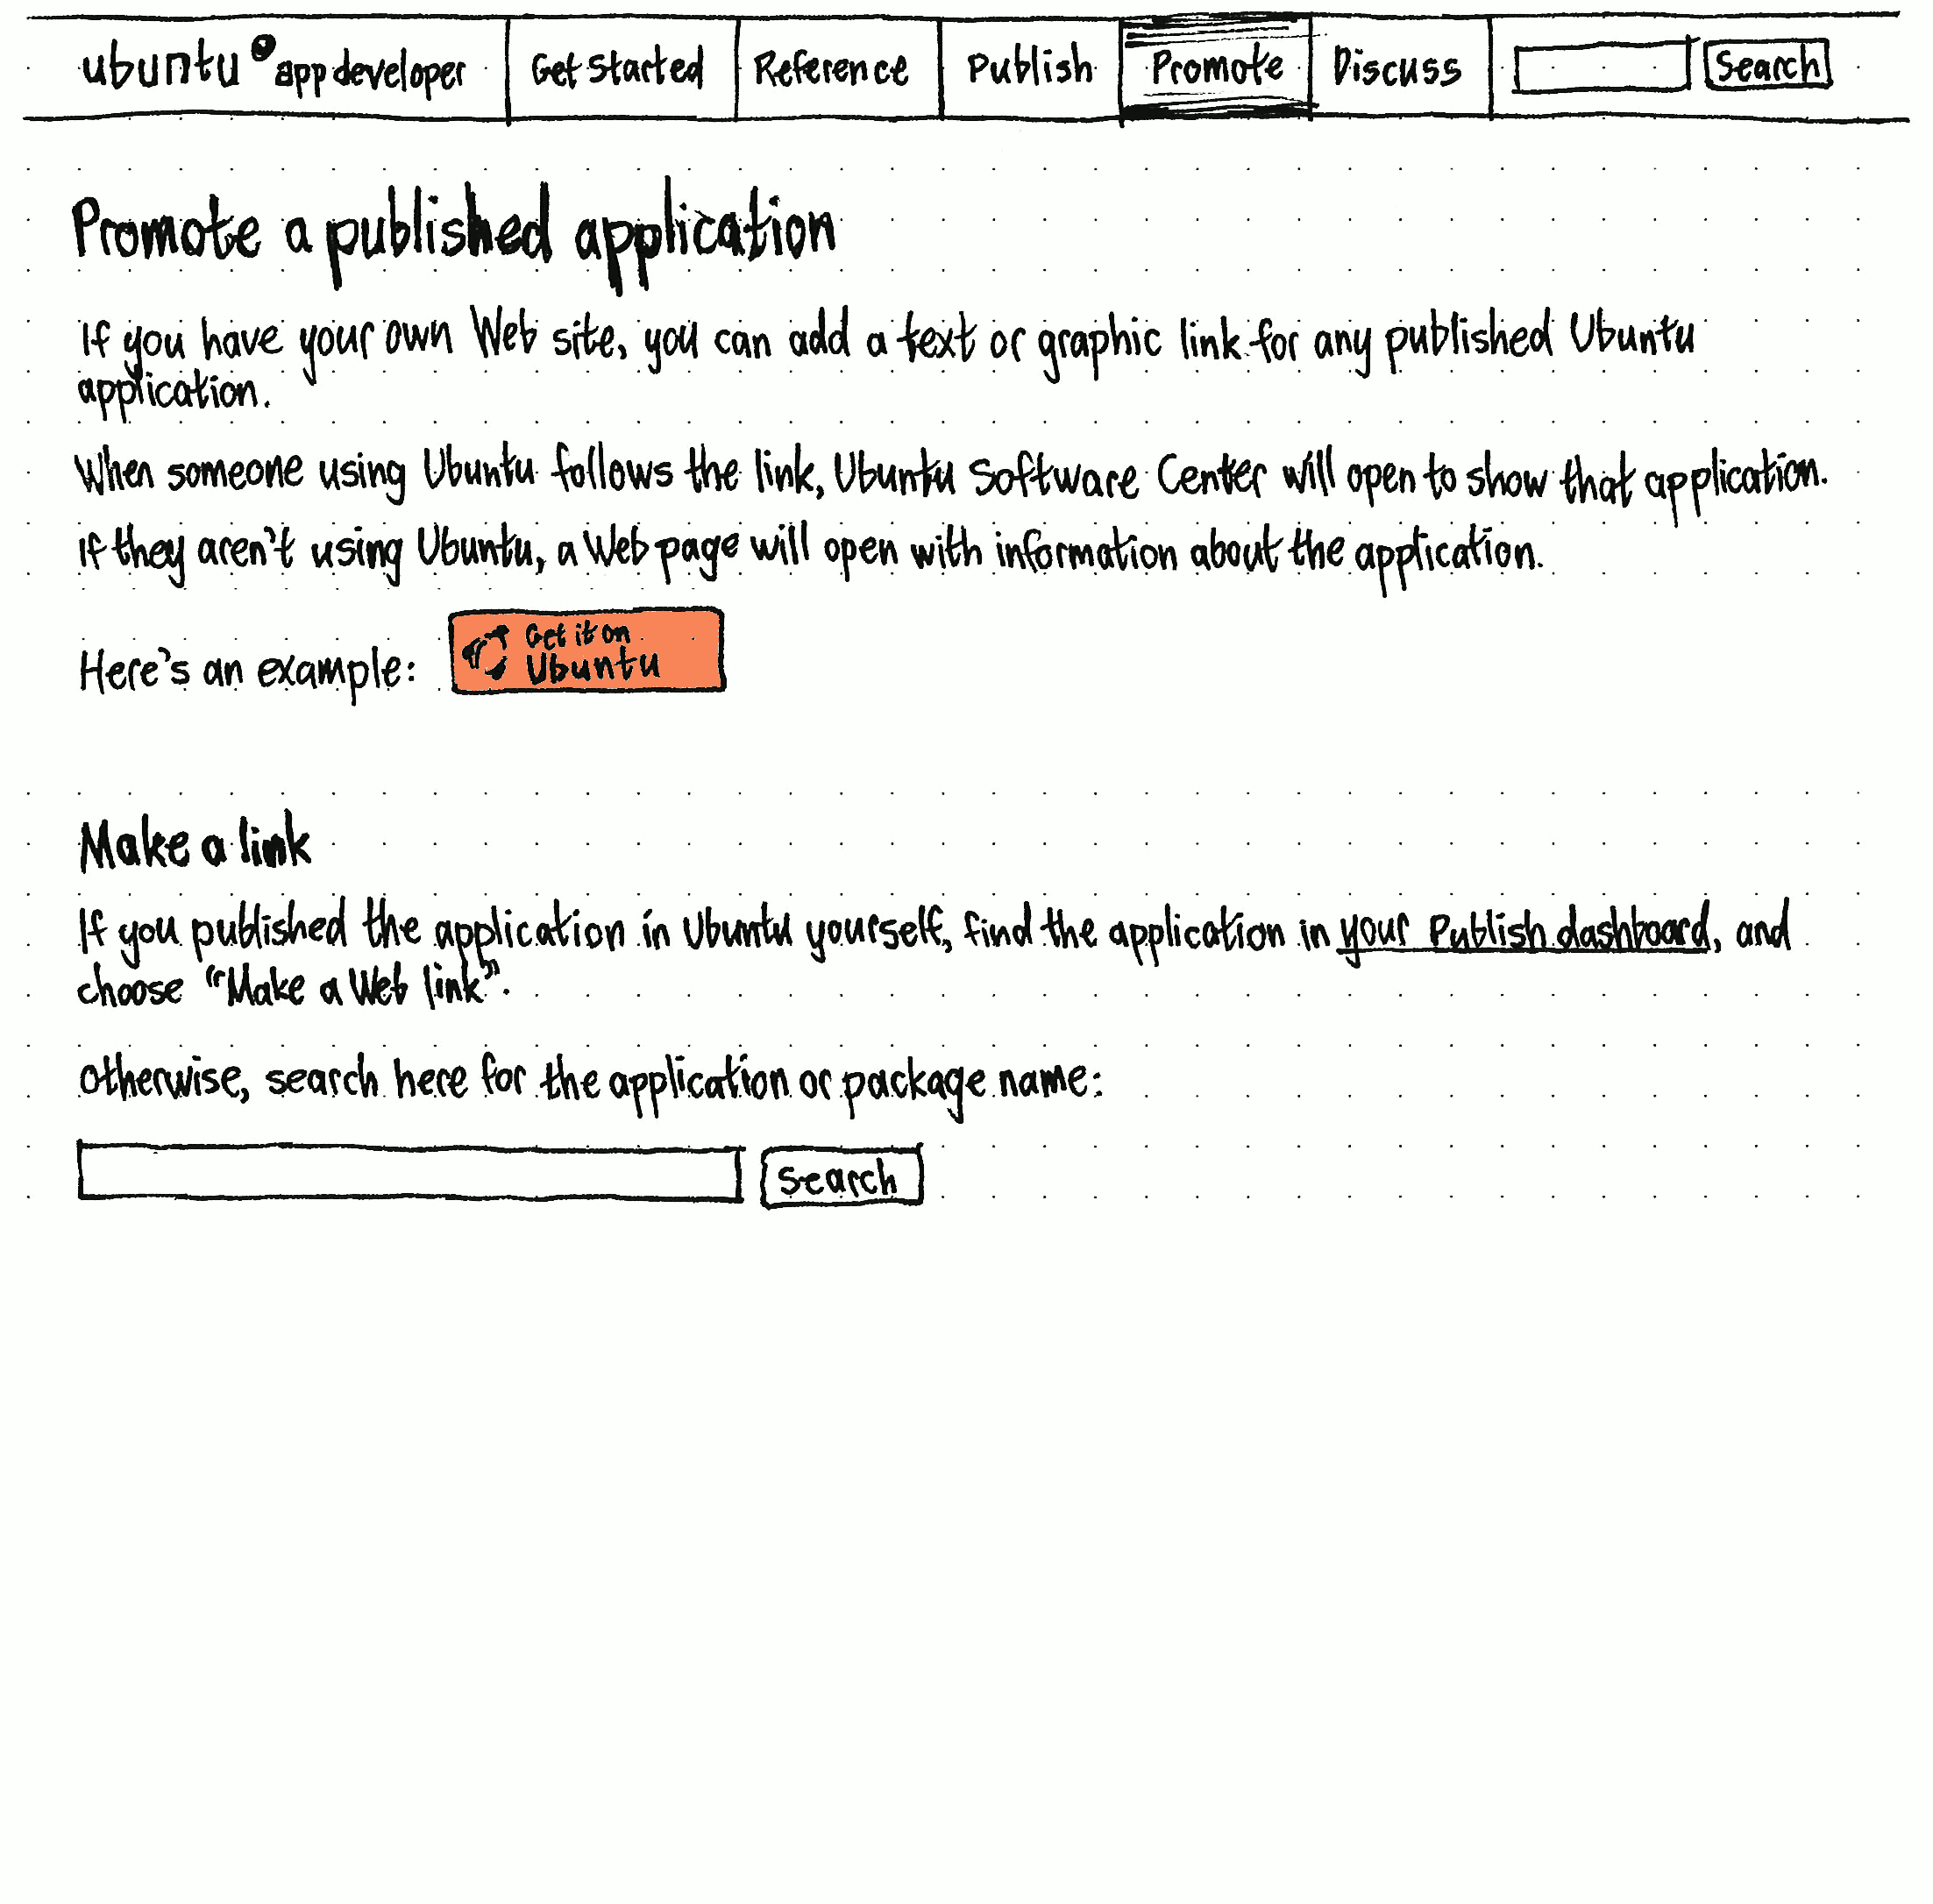 ubuntu app developer Get started Reference Publish Promote Discuss Search
Promote a published application
If you have your own Web site, you can add a text or graphic link for any published Ubuntu
application.
When someone using Ubuntu follows the link, Ubuntu Software Center will open to show that application.
if they aren't using Ubuntu, a Web page will open with information about the application.
Here's an example: Get it on
Ubuntu
Make a link
If you published the application in Ubuntu yourself, find the application in your Publish dashboard, and
choose "Make a Web link".
otherwise, search here for the application or package name:
Search